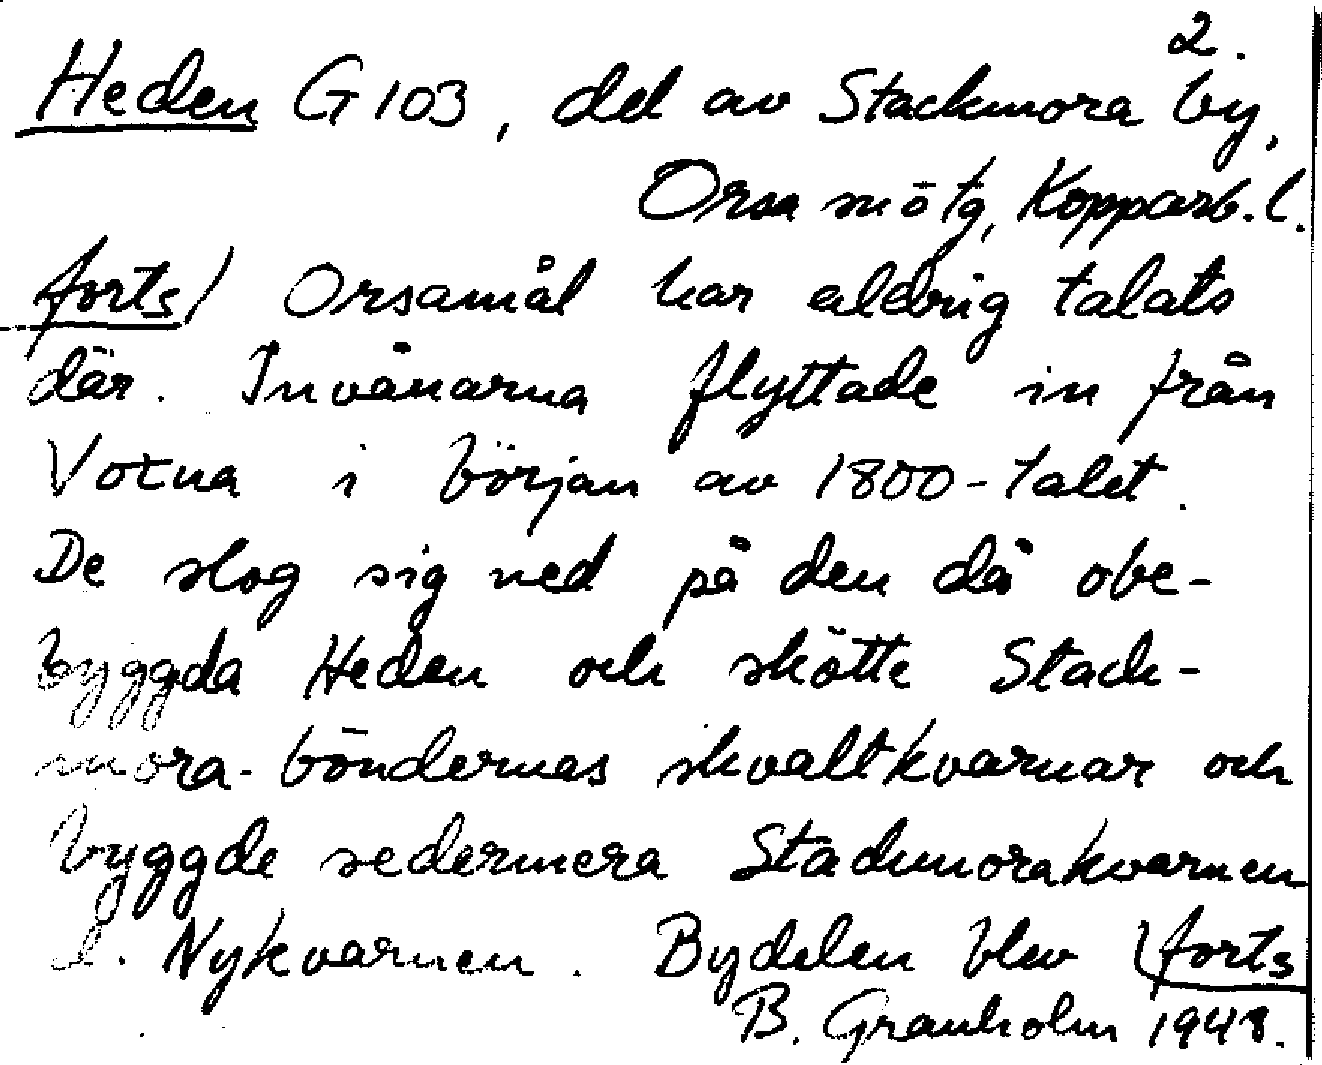 2.
Heden G103, del av Stackmora by,
Orsa sn o tg, Kopparb. l.
forts/ Orsamål har aldrig talats
där. Invånarna flyttade in från
Voxna i början av 1800-talet.
De slog sig ned på den då obe-
byggda Heden och skötte Stack-
mora-böndernas skvaltkvarnar och
byggde sedermera Stackmorakvarnen
l. Nykvarnen. Bydelen blev /forts
B. Granholm 1948.